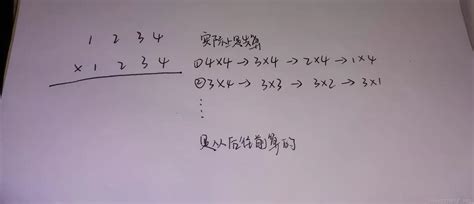 1 2 3 4
× 1 2 3 4
实际上是先算
①4×4 → 3×4 → 2×4 → 1×4
②3×4 → 3×3 → 3×2 → 3×1
⋮
是从后往前算的